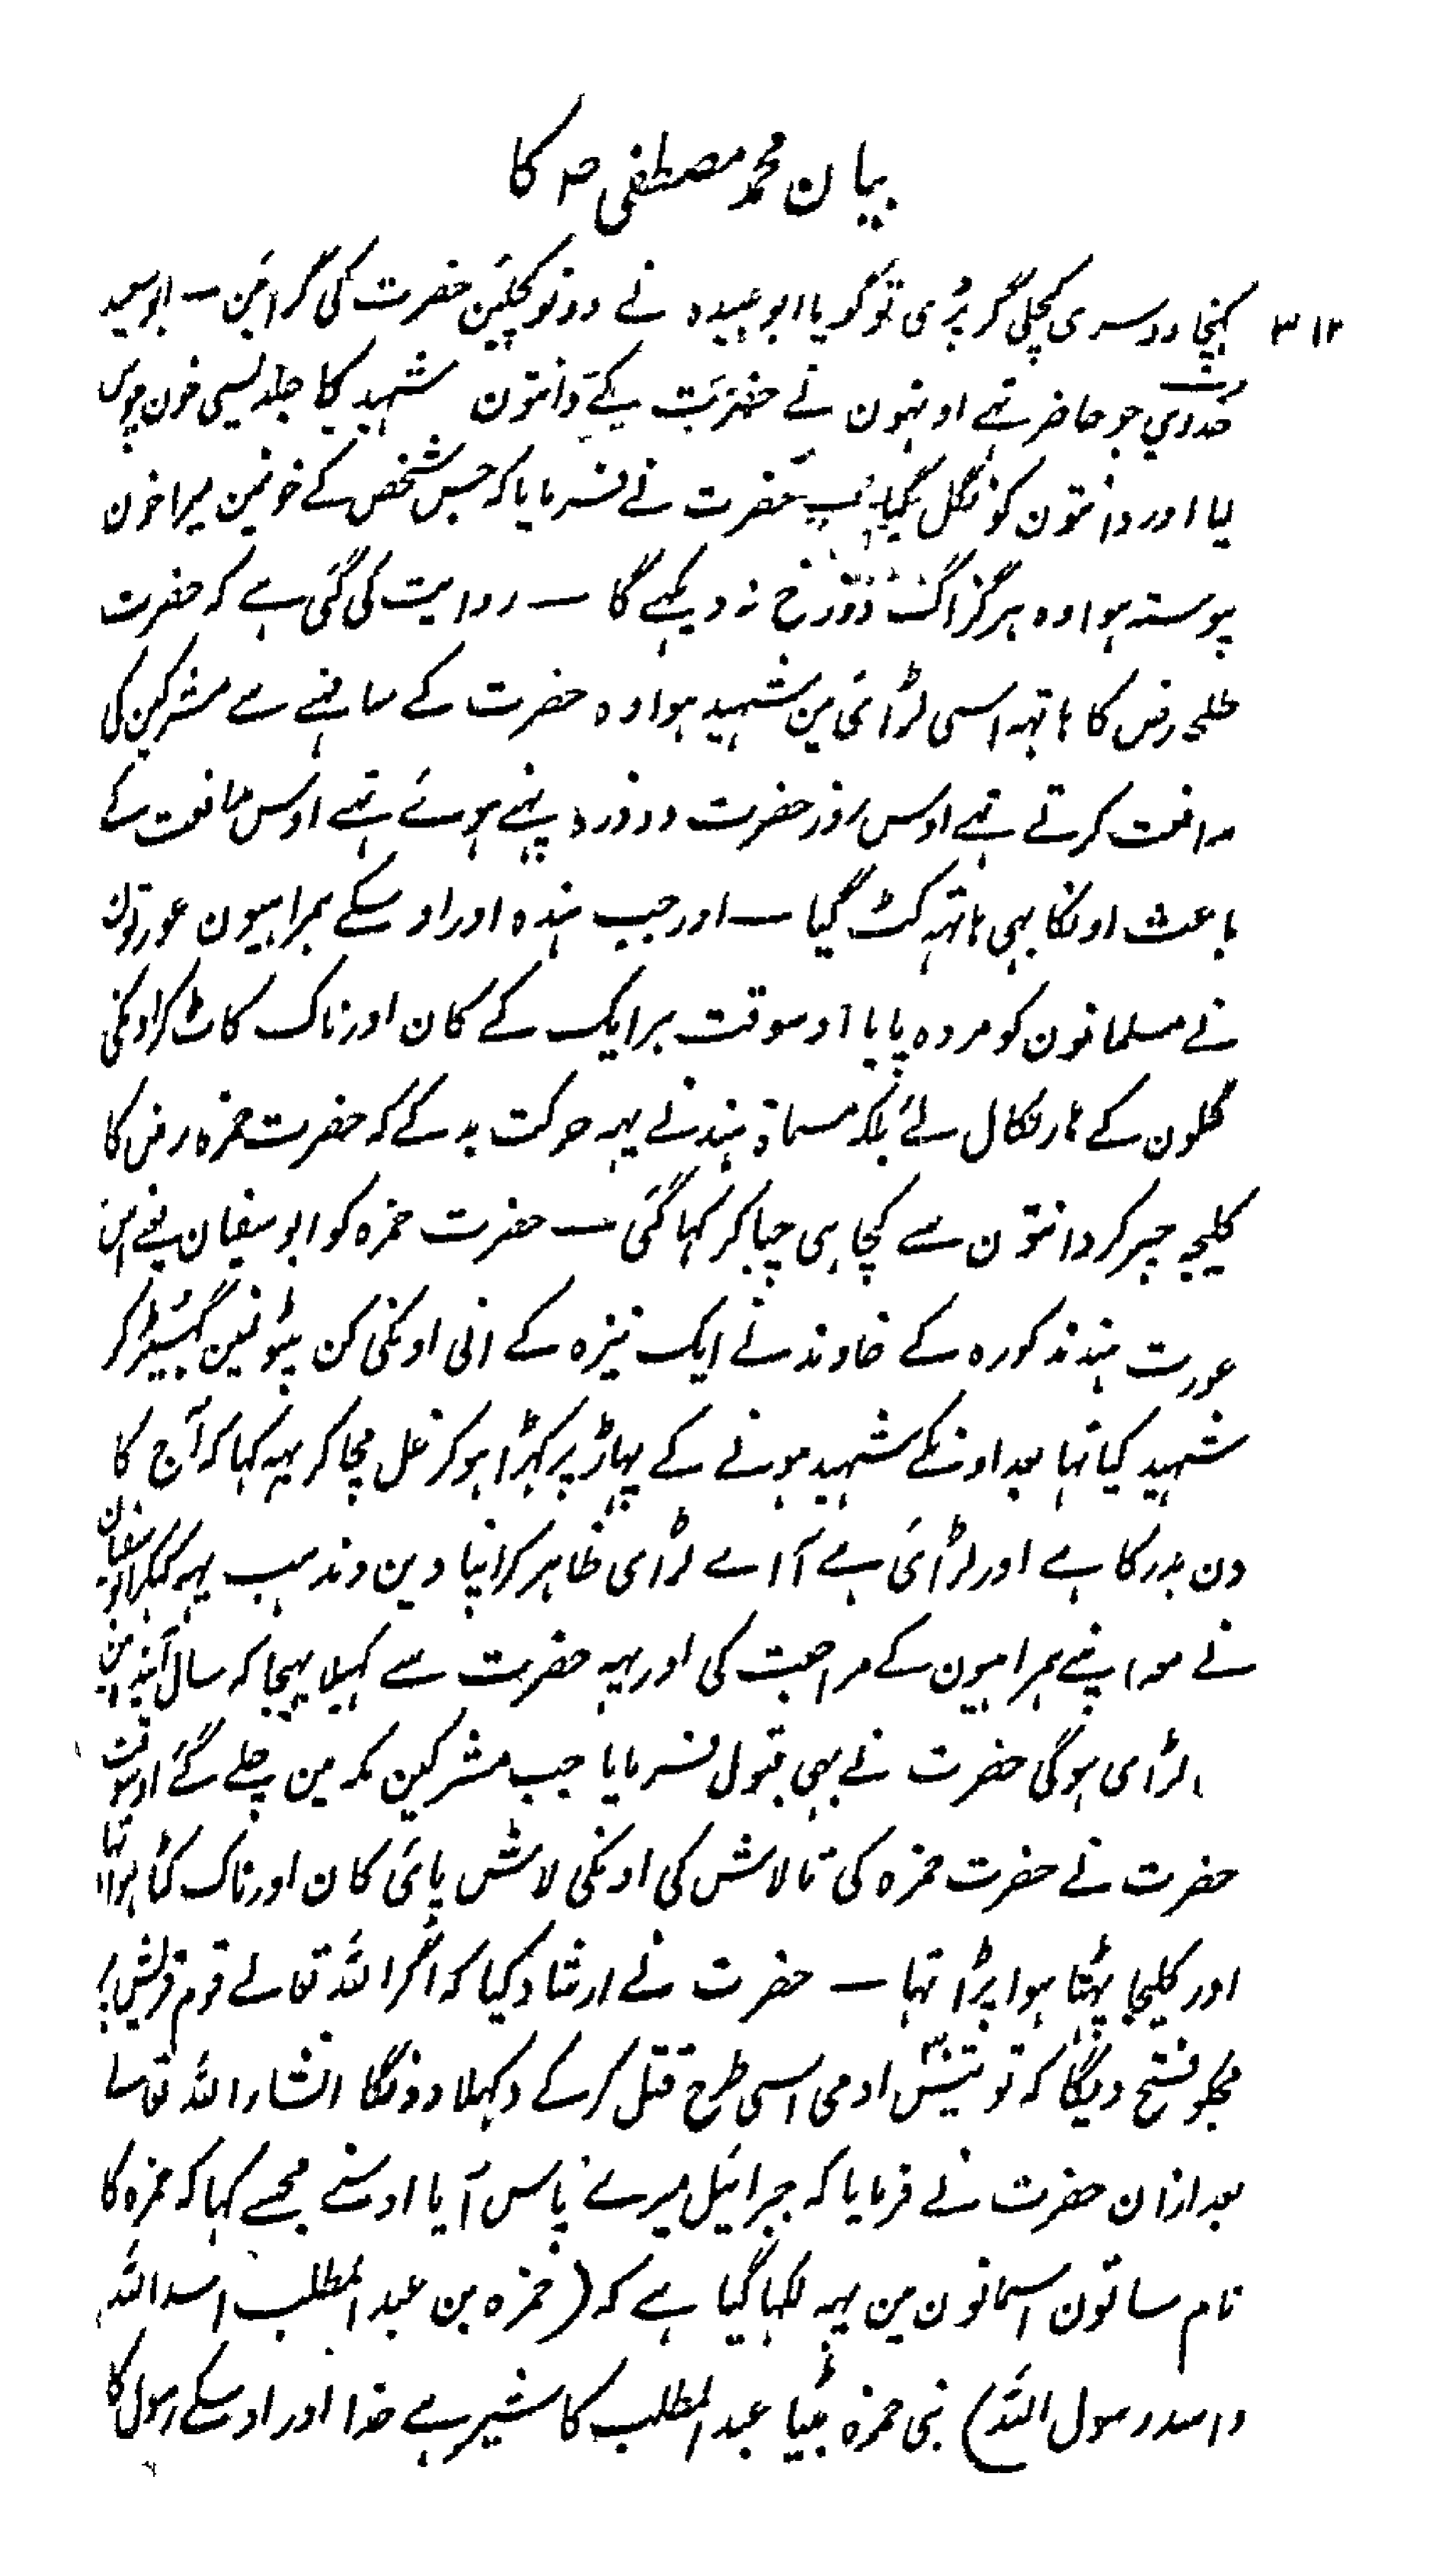 بیان محمد مصطفی ص کا
۳۱۲
کہنچا دوسری کچلی گر پڑی تو گویا ابو عبیدہ نے دونو کچلیین حضرت کی گرائین — ابو سعید
خدری جو حاضر تہے اونہون نے حضرت کے دانتون شہید کا جلد لیسی خون چوس
لیا اور دانتون کو نگل گیا پس حضرت نے فرمایا کہ جس شخص کے خونمین میرا خون
پوستہ ہوا وہ ہرگز اگ دوزخ نہ دیکہے گا — روایت کی گئی ہے کہ حضرت
طلحہ رض کا ہاتہہ اسی لڑائی مین شہید ہوا وہ حضرت کے سامنے سے مشرکین کی
مدافعت کرتے تہے اوس روز حضرت دو زرہ پہنے ہوئے تہے اوس ممانعت کے
باعث اونکا بہی ہاتہہ کٹ گیا — اور جب ہندہ اور اوسکے ہمراہیون عورتون
نے مسلمانون کو مردہ پایا اوسوقت ہر ایک کے کان اور ناک کاٹ کر اونکی
گلون کے ہار نکال لئے بلکہ مسماۃ ہند نے یہہ حرکت بد کے کہ حضرت حمزہ رض کا
کلیجہ چیر کر دانتون سے کچا ہی چبا کر کہا گئی — حضرت حمزہ کو ابو سفیان نے اس
عورت ہند مذکورہ کے خاوند نے ایک نیزہ کے انی اونکی کن پٹونین گہسیڑ کر
شہید کیا تہا بعد اونکے شہید ہونے کے پہاڑ پر کہڑا ہو کر غل مچا کر یہہ کہا کہ آج کا
دن بدر کا ہے اور لڑائی ہے آ اے لڑائی ظاہر کر اپنا دین و مذہب یہہ کہکر ابو سفیان
نے معہ اپنے ہمراہیون کے مراجعت کی اور یہہ حضرت سے کہیلا بہیجا کہ سال آیندہ مین
لڑائی ہوگی حضرت نے بہی قبول فرمایا جب مشرکین مکہ مین چلے گئے اوسوقت
حضرت نے حضرت حمزہ کی تالاش کی اونکی لاش پائی کان اور ناک کٹا ہوا تہا
اور کلیجا پہٹا ہوا پڑا تہا — حضرت نے ارشاد کیا کہ اگر اللہ تعالے قوم قریش پر
مجکو فتح دیگا کہ تو تیس ۳۰ ادمی اسی طرح قتل کر کے دکہلا دونگا انشاء اللہ تعالے
بعد ازان حضرت نے فرمایا کہ جبرائیل میرے پاس آیا اوسنے مجسے کہا کہ حمزہ کا
نام ساتون اسمانون مین یہہ لکہا گیا ہے کہ (حمزہ بن عبد المطلب اسد اللہ
و اسد رسول اللہ) بنی حمزہ بٹیا عبد المطلب کا شیر ہے خدا اور اوسکے رسول کا